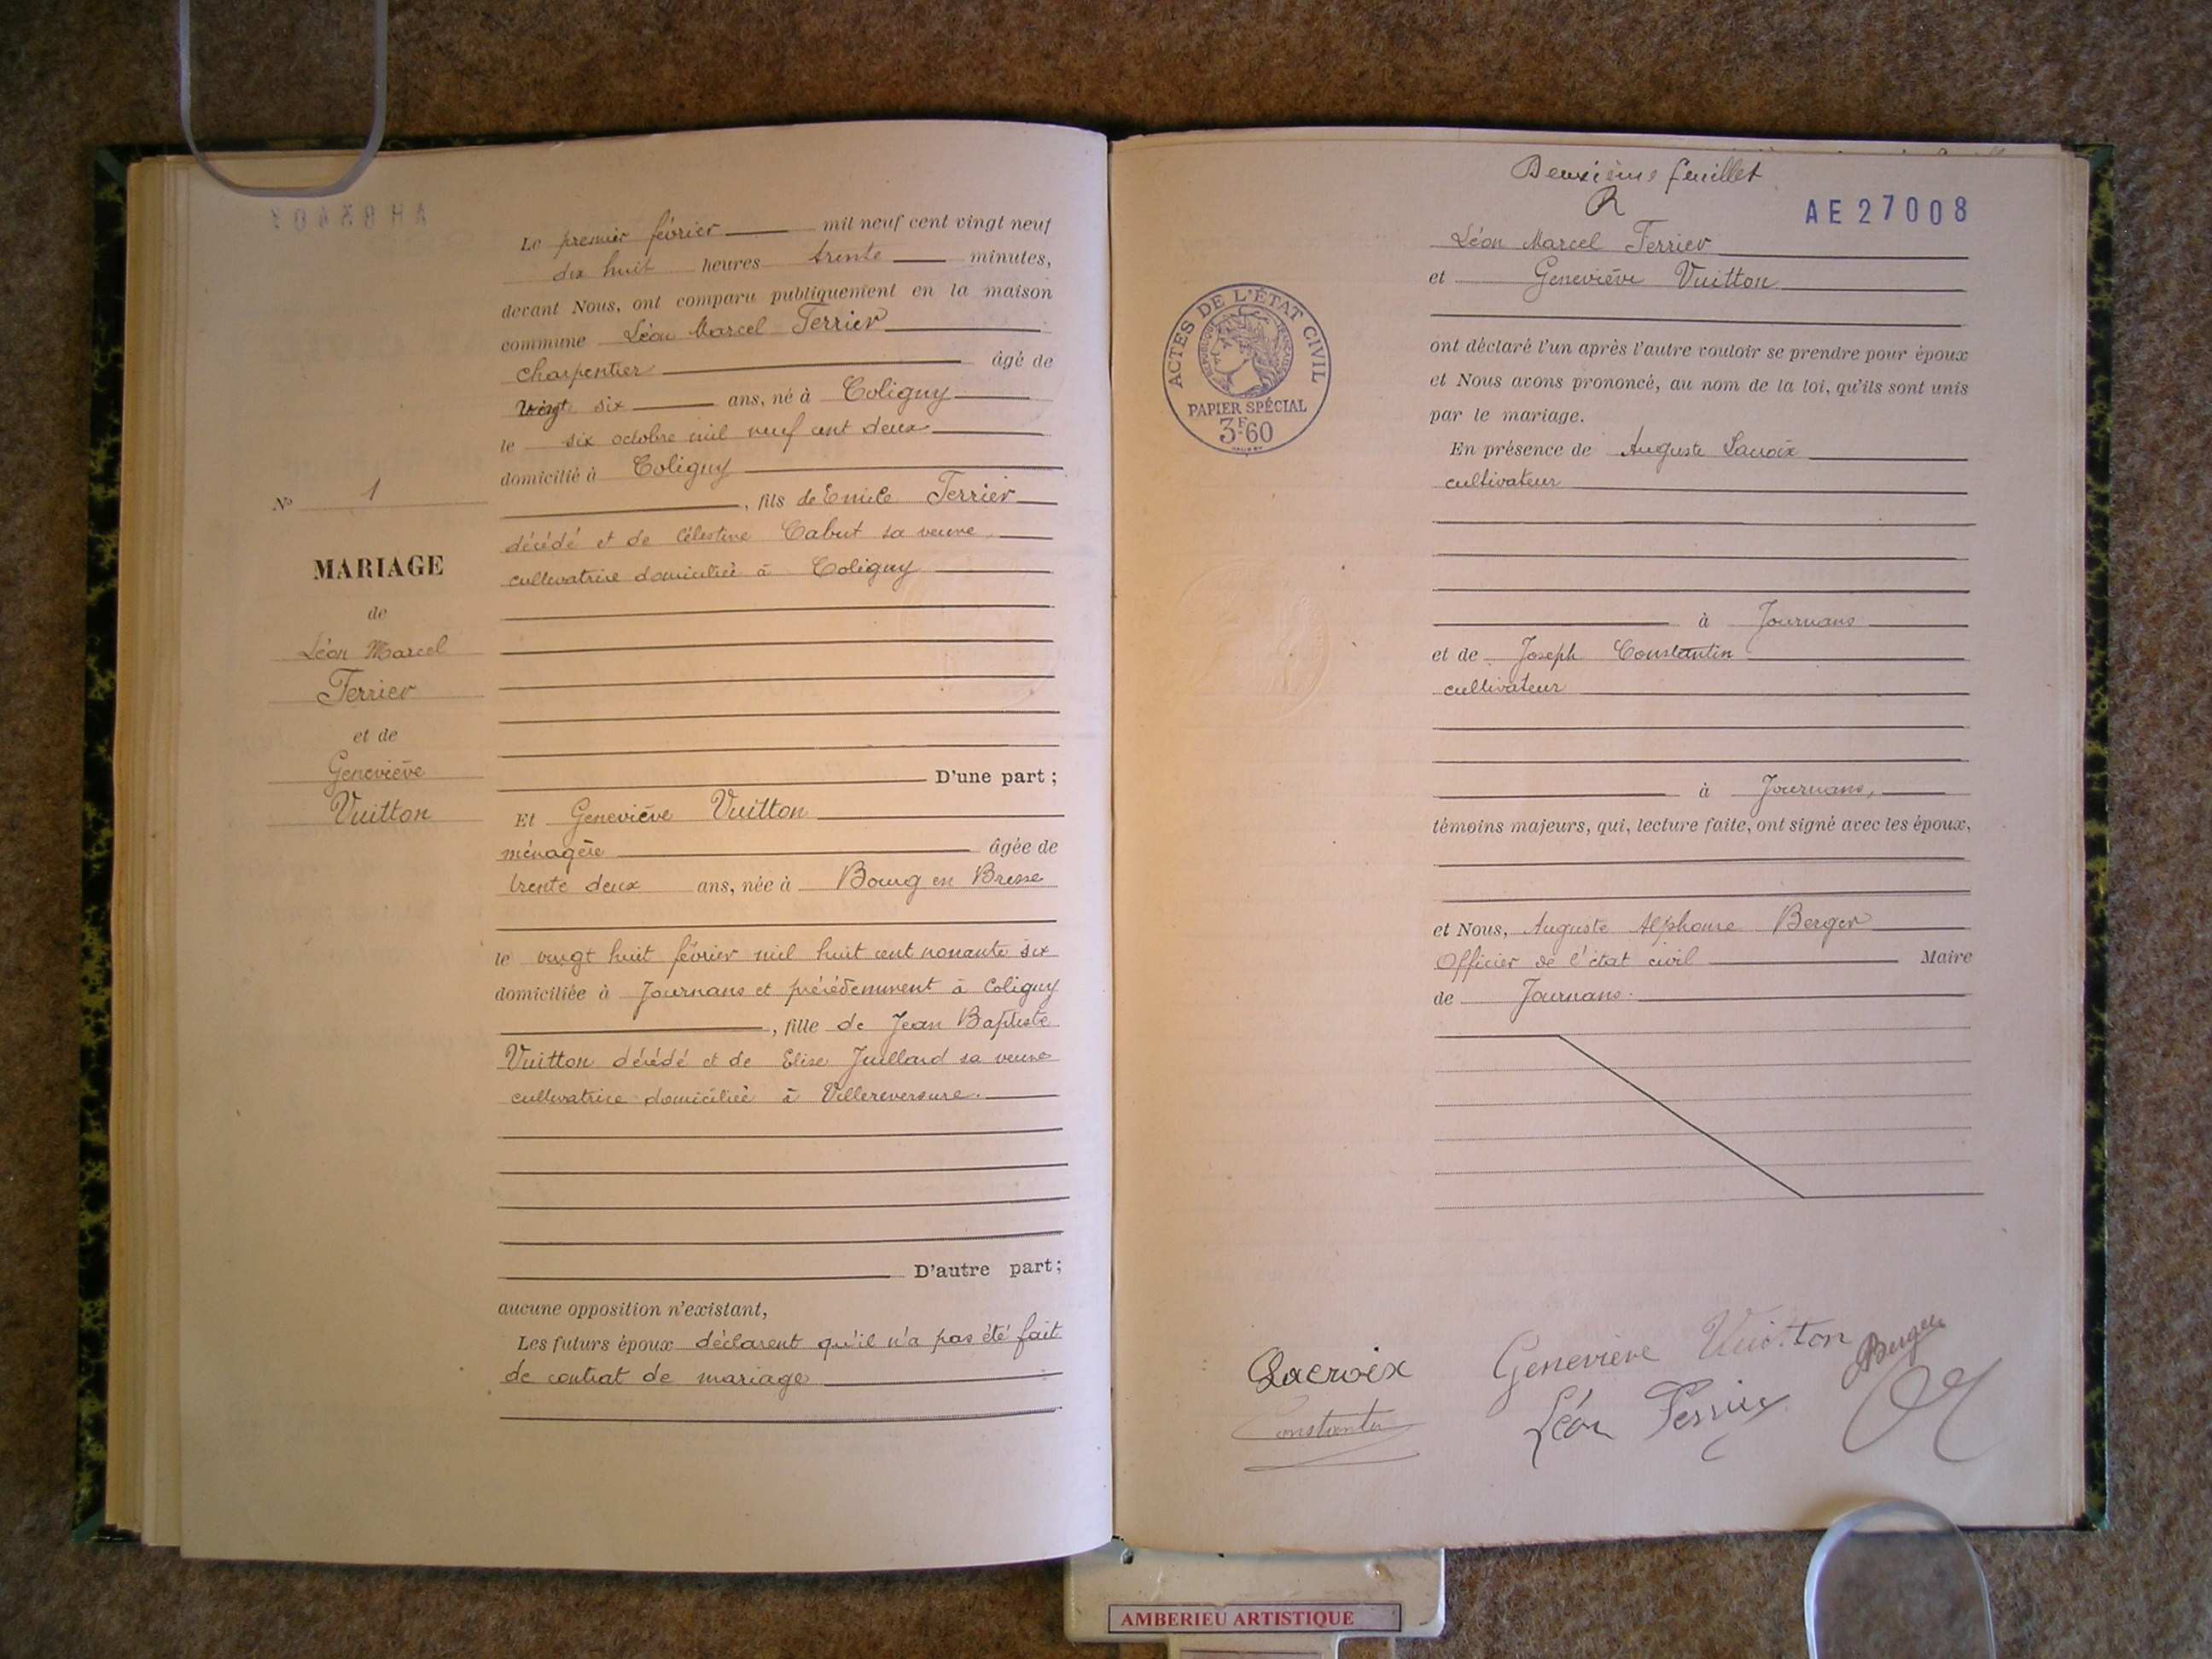 Le premier février mil neuf cent vingt neuf
dix huit heures trente minutes,
devant Nous, ont comparu publiquement en la maison
commune Léon Marcel Terrier
charpentier âgé de
vingt six ans, né à Coligny
le six octobre mil neuf cent deux
domicilié à Coligny
, fils de Emile Terrier
décédé et de Célestine Cabut sa veuve
cultivatrice domiciliée à Coligny
D'une part ;
Nº 1
MARIAGE
de
Léon Marcel
Terrier
et de
Geneviève
Vuitton
Et Geneviève Vuitton
ménagère âgée de
trente deux ans, née à Bourg en Bresse
le vingt huit février mil huit cent nonante six
domiciliée à Journans et précédemment à Coligny
, fille de Jean Baptiste
Vuitton décédé et de Elise Juillard sa veuve
cultivatrice domiciliée à Villereversure.
D'autre part ;
aucune opposition n'existant,
Les futurs époux déclarent qu'il n'a pas été fait
de contrat de mariage
Deuxième feuillet
AE 27008
Léon Marcel Terrier
et Geneviève Vuitton
ACTES DE L'ÉTAT CIVIL
RÉPUBLIQUE FRANÇAISE
PAPIER SPÉCIAL
3F60
ont déclaré l'un après l'autre vouloir se prendre pour époux
et Nous avons prononcé, au nom de la loi, qu'ils sont unis
par le mariage.
En présence de Auguste Lacroix
cultivateur
à Journans
et de Joseph Constantin
cultivateur
à Journans,
témoins majeurs, qui, lecture faite, ont signé avec les époux,
et Nous, Auguste Alphonse Berger
Officier de l'état civil Maire
de Journans.
Lacroix
Geneviève Vuitton
Berger
Constantin
Léon Terrier
AMBERIEU ARTISTIQUE